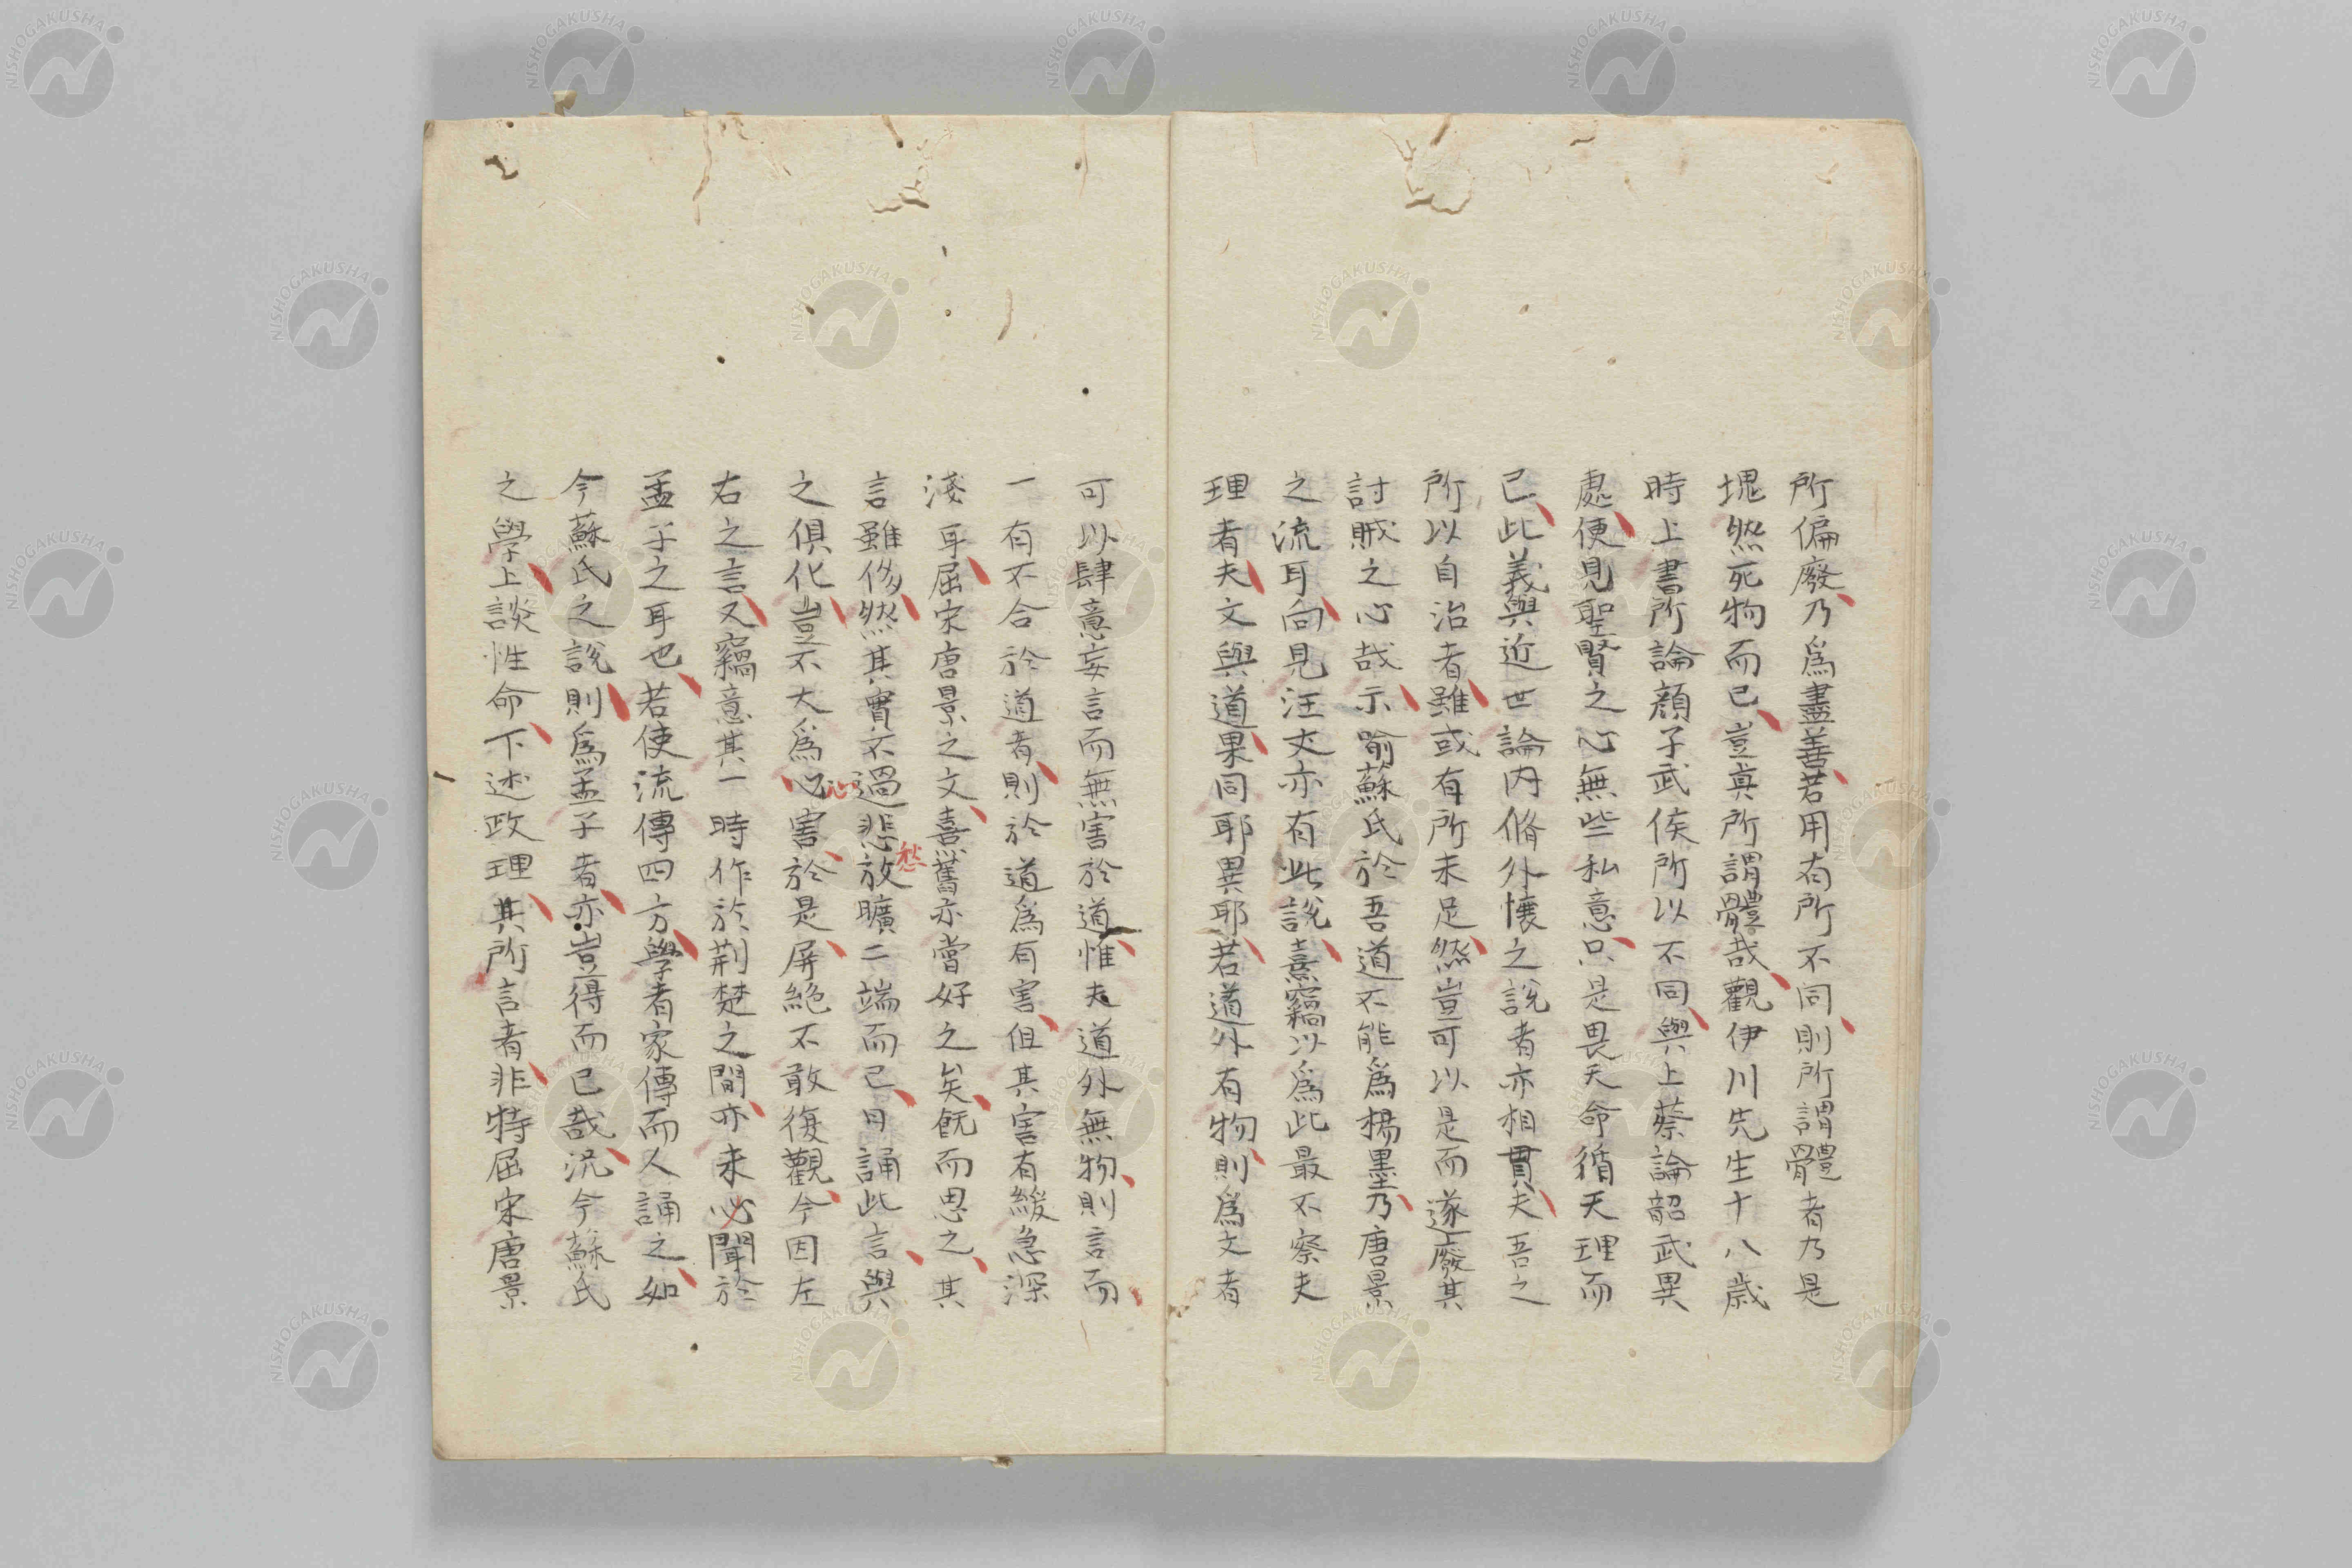 所偏廢乃爲盡善若用有所不同則所謂體者乃是
塊然死物而已豈真所謂體哉觀伊川先生十八歲
時上書所論顏子武侯所以不同與上蔡論韶武異
處便見聖賢之心無些私意只是畏天命循天理而
已此義與近世論内脩外懐之說者亦相貫夫吾之
所以自治者雖或有所未足然豈可以是而遂廢其
討賊之心哉示喻蘇氏於吾道不能爲楊墨乃唐景
之流耳向見汪丈亦有此說熹竊以爲此最不察夫
理者夫文與道果同耶異耶若道外有物則爲文者
可以肆意妄言而無害於道惟夫道外無物則言而
一有不合於道者則於道爲有害但其害有緩急深
淺耳屈宋唐景之文熹舊亦嘗好之矣既而思之其
言雖侈然其實不過悲愁放曠二端而已日誦此言與
之俱化豈不大爲心害於是屏絶不敢復觀今因左
右之言又竊意其一時作於荆楚之間亦未必聞於
孟子之耳也若使流傳四方學者家傳而人誦之如
今蘇氏之說則爲孟子者亦豈得而已哉況今蘇氏
之學上談性命下述政理其所言者非特屈宋唐景
心
NISHOGAKUSHA